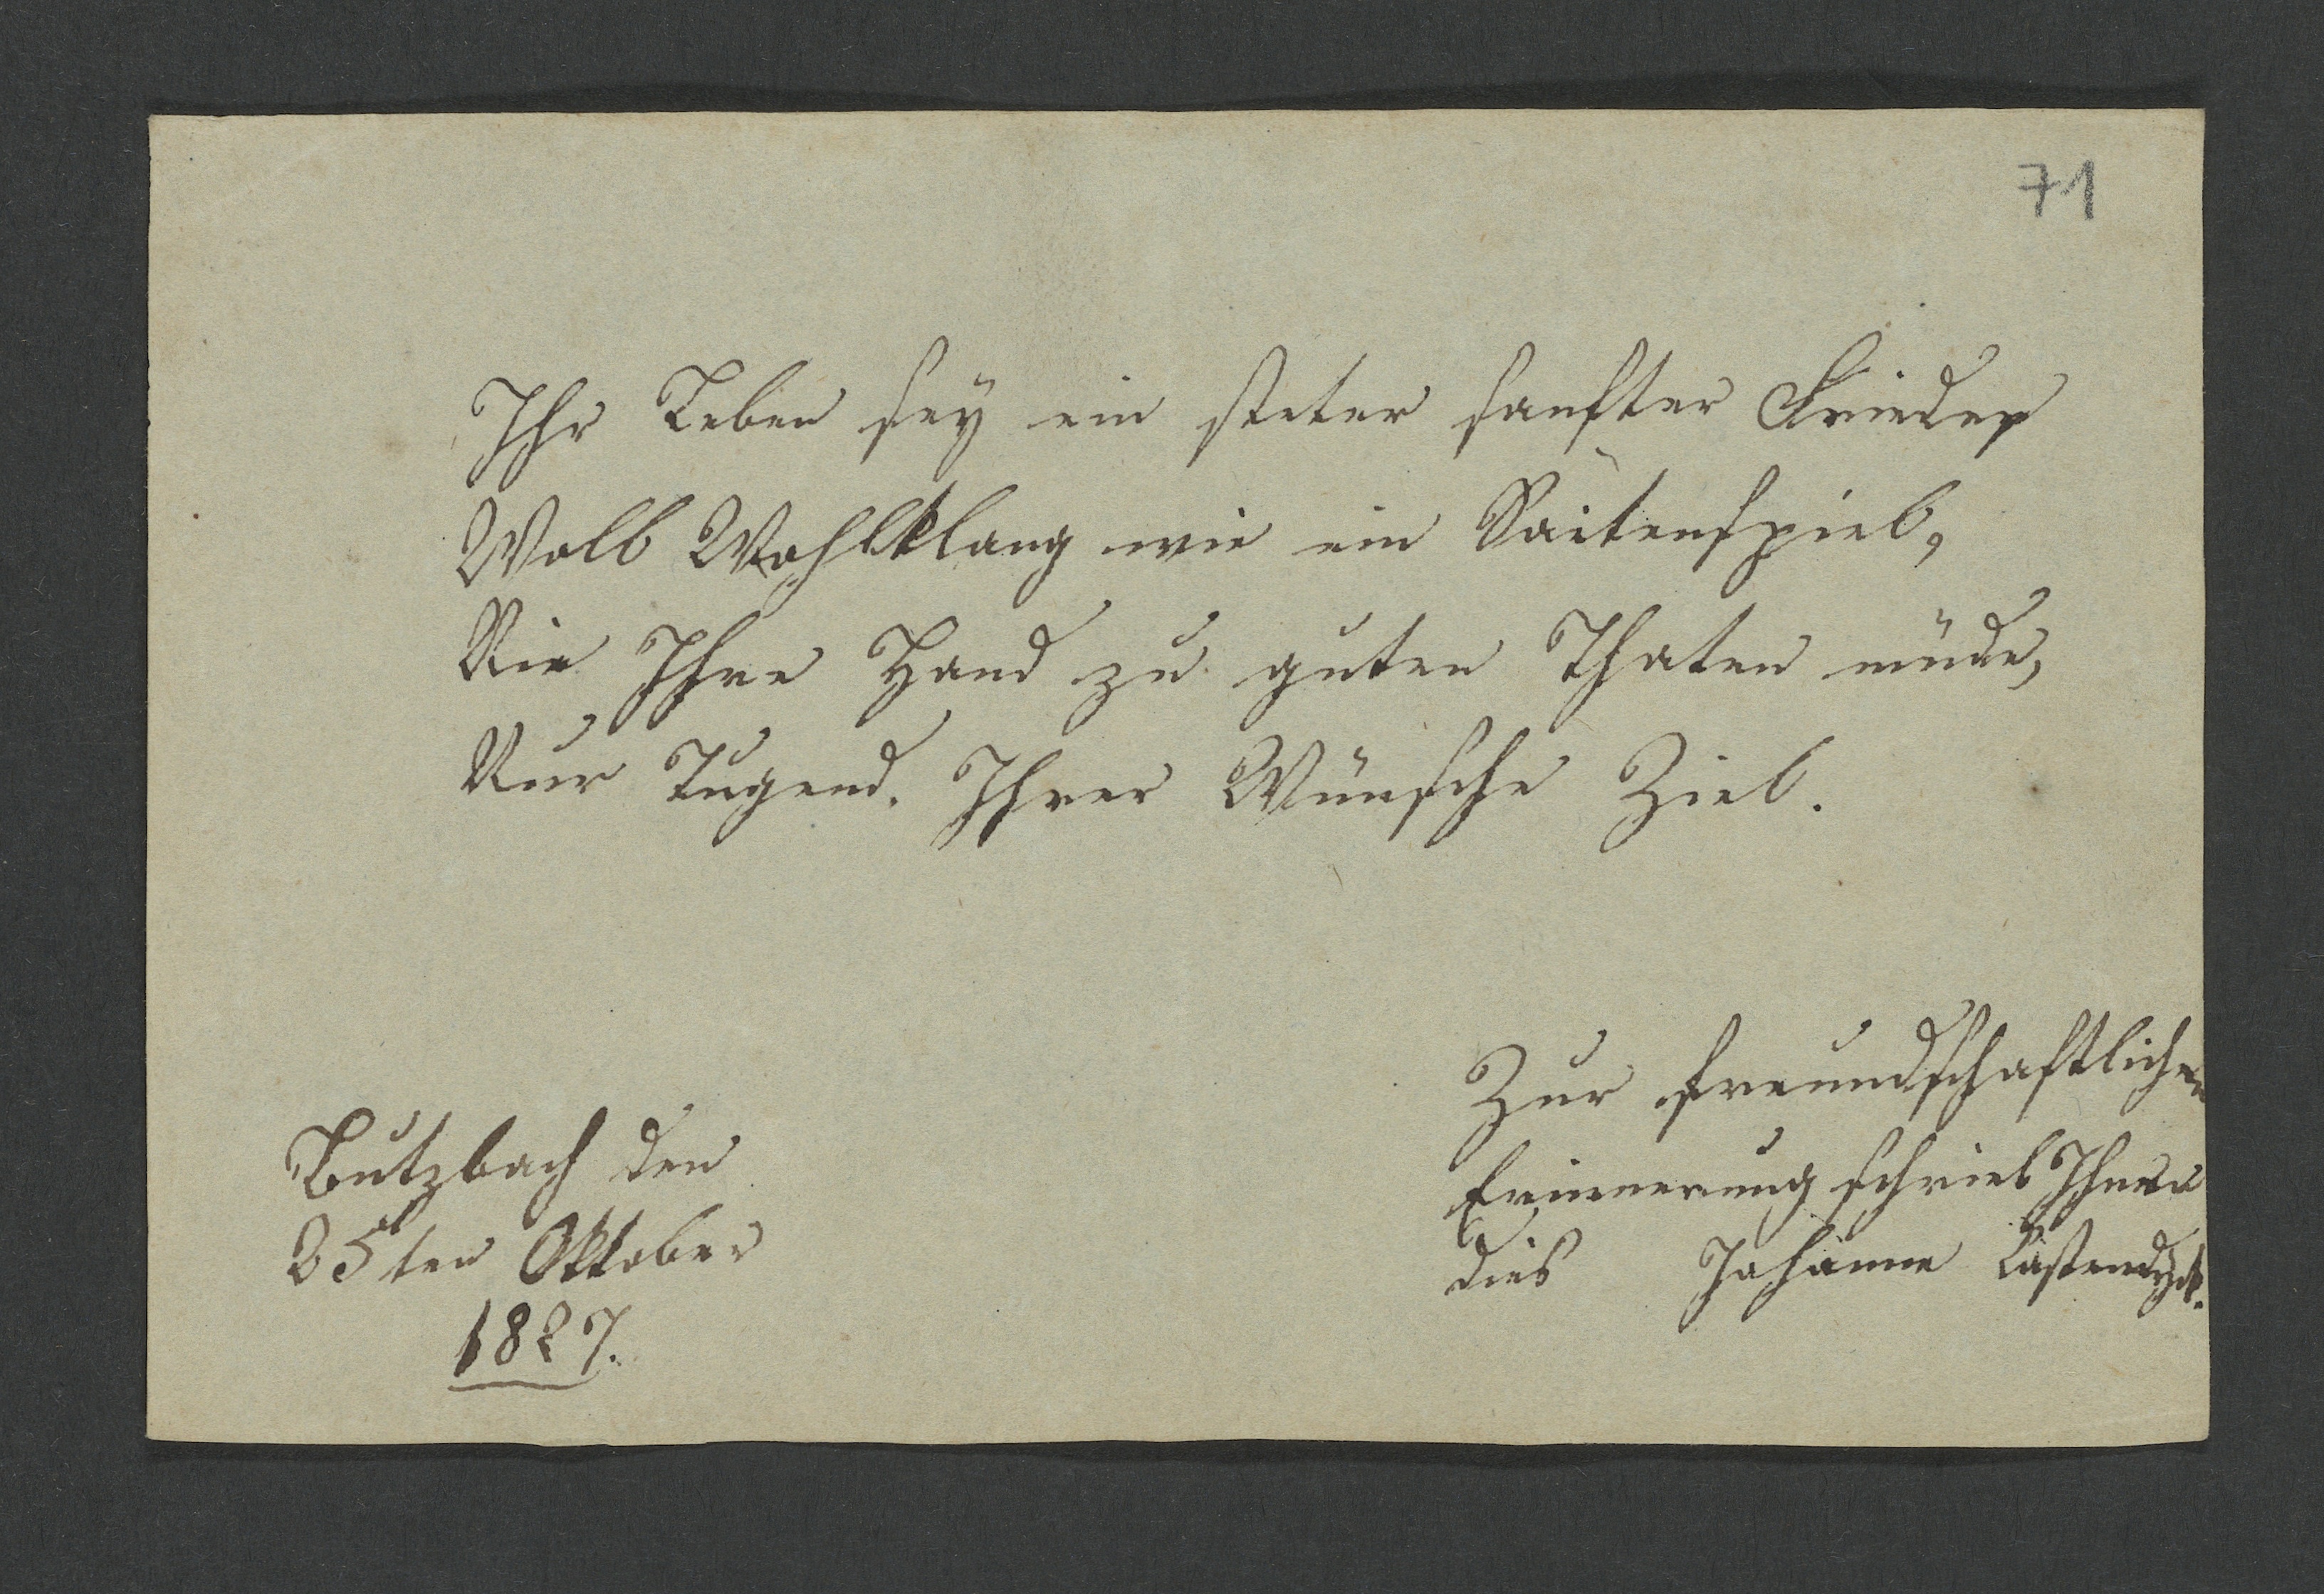 71
Ihr Leben sey ein steter sanfter Frieden
Woll Wohlklang wie ein Saitenspiel,
Nie Ihre Hand zu guten Thaten müde,
Nur Tugend. Ihrer Wünsche Ziel.
Zur freundschaftlichen
Erinnerung schrieb Ihnen
dies Johanne Castendyk.
Butzbach den
25ten Oktober
1827.